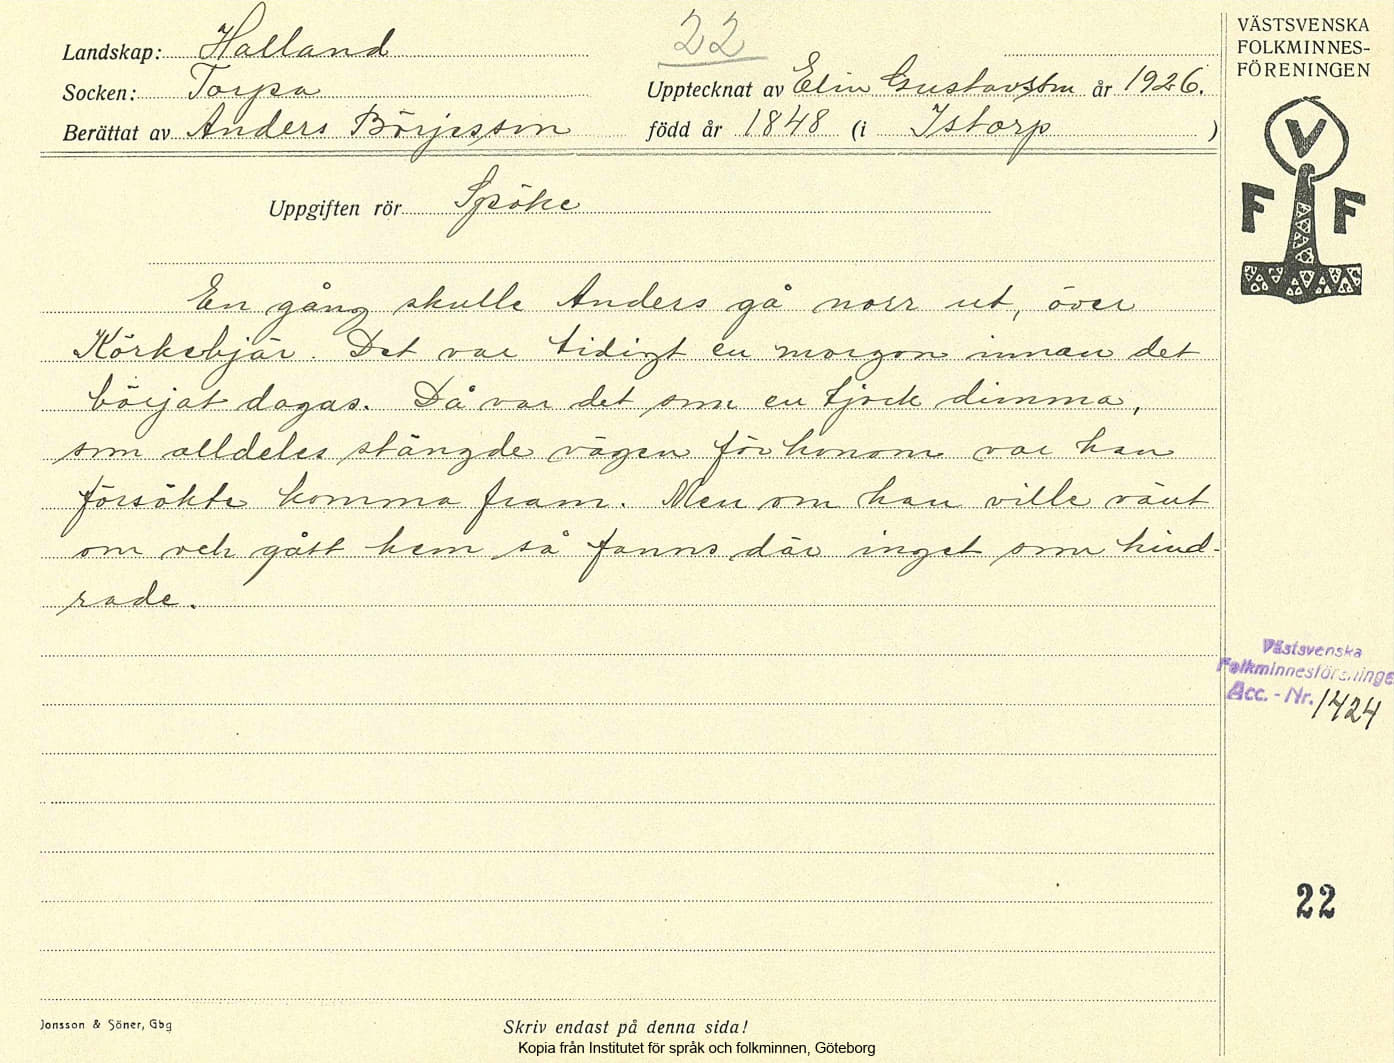 Landskap: Halland
22
Socken: Torpa
Upptecknat av Elin Gustavsson år 1926.
Berättat av Anders Börjesson
född år 1848 (i Istorp )
Uppgiften rör Spöke
En gång skulle Anders gå norr ut, över
Körkebjär. Det var tidigt en morgon innan det
börjat dagas. Då var det som en tjock dimma,
som alldeles stängde vägen för honom var han
försökte komma fram. Men om han ville vänt
om och gått hem så fanns där inget som hind-
rade.
VÄSTSVENSKA
FOLKMINNES-
FÖRENINGEN
V
F F
Västsvenska
Folkminnesföreninge
Acc. - Nr. 1424
22
Jonsson & Söner, Gbg
Skriv endast på denna sida!
Kopia från Institutet för språk och folkminnen, Göteborg